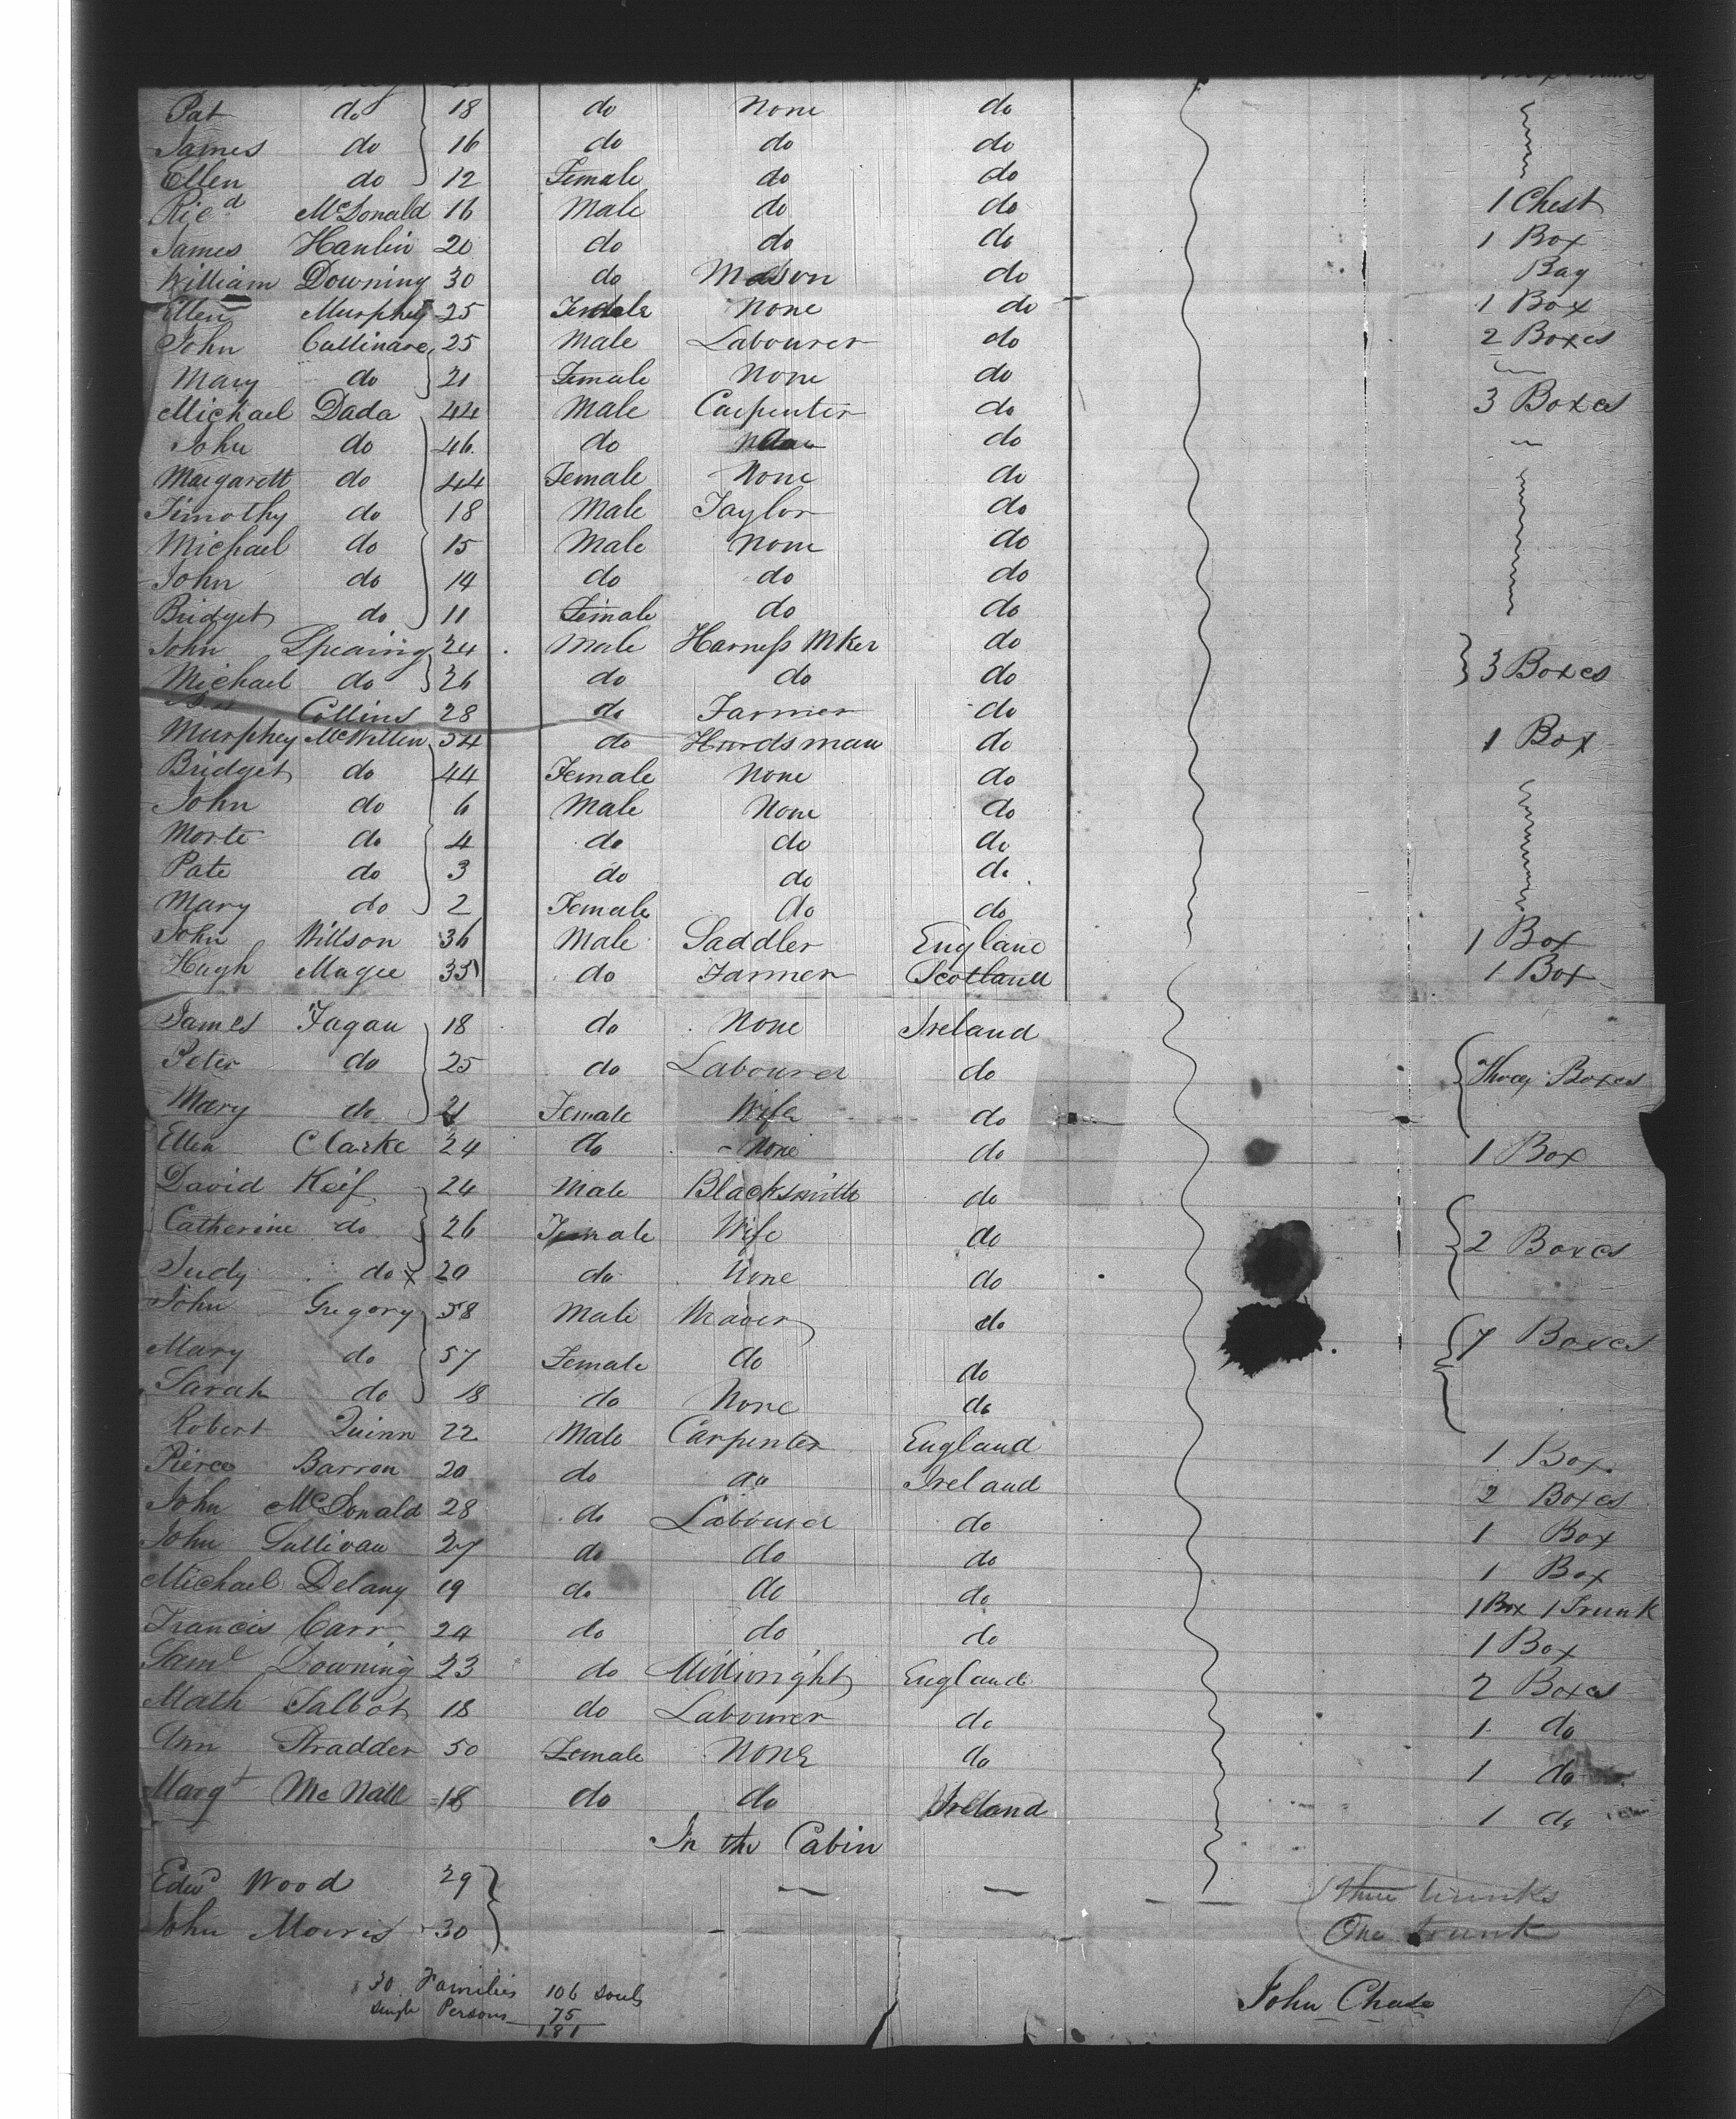 Pat do 18 do None do
James do 16 do do do
Ellen do 12 Female do do
Ricd McDonald 16 Male do do 1 Chest
James Hanlin 20 do do do 1 Box
William Downing 30 do Mason do Bag
Ellen Murphey 25 Female None do 1 Box
John Cullinare 25 Male Labourer do 2 Boxes
Mary do 21 Female None do
Michael Dada 44 Male Carpenter do 3 Boxes
John do 46 do do
Margarett do 44 Female None do
Timothy do 18 Male Taylor do
Michael do 15 Male None do
John do 14 do do do
Bridget do 11 Female do do
John Spearing 24 Male Harness Mker do
Michael do 26 do do do 3 Boxes
Collins 28 do Farmer do
Murphey McMillen 34 do Hurdsman do 1 Box
Bridget do 44 Female None do
John do 6 Male None do
Morte do 4 do do do
Pate do 3 do do do
Mary do 2 Female do do
John Willson 36 Male Saddler England 1 Box
Hugh Magee 35 do Farmer Scotland 1 Box
James Fagan 18 do None Ireland
Peter do 25 do Labourer do Three Boxes
Mary do 21 Female Wife do
Ellen Clarke 24 do None do 1 Box
David Keif 24 Male Blacksmith do
Catherine do 26 Female Wife do 2 Boxes
Judy do 20 do None do
John Gregory 58 Male Weaver do
Mary do 57 Female do do 7 Boxes
Sarah do 18 do None do
Robert Quinn 22 Male Carpenter England 1 Box
Pierce Barron 20 do do Ireland 2 Boxes
John McDonald 28 do Labourer do 1 Box
John Sullivan 27 do do do 1 Box
Michael Delany 19 do do do 1 Box 1 Trunk
Francis Carr 24 do do do 1 Box
Saml Downing 23 do Millwright England 2 Boxes
Math Talbot 18 do Labourer do 1 do
Ann Stradder 50 Female None do 1 do
Margt McNall 18 do do Ireland 1 do
In the Cabin
Edwd Wood 29 three trunks
John Morris 30 One trunk
30 Families 106 Souls
Single Persons 75
181
John Chase